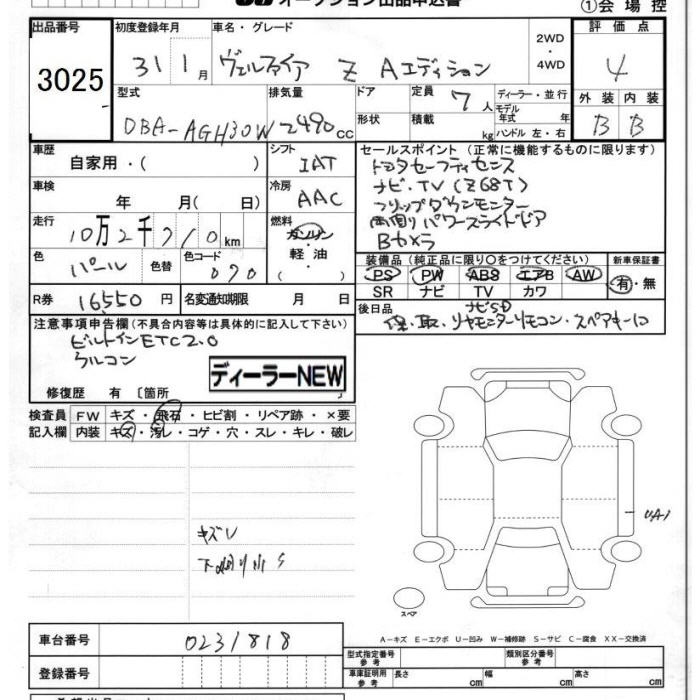 オークション出品申込書
①会場控
出品番号
3025
初度登録年月
31 1月
車名・グレード
ヴェルファイア Z Aエディション
2WD
・
4WD
評価点
4
外装 内装
B B
型式
DBA-AGH30W
排気量
2490cc
ドア
形状
定員
7人
積載
kg
ディーラー・並行
モデル年式 年
ハンドル 左・右
車歴
自家用・( )
シフト
IAT
車検
年 月( 日)
冷房
AAC
走行
10万2千710km
燃料
ガソリン
軽油
( )
色
パール
色替
色コード
070
R券 16550円
名変通知期限 月 日
セールスポイント (正常に機能するものに限ります)
トヨタセーフティセンス
ナビ.TV(Z68T)
フリップダウンモニター
両側パワースライドドア
Bカメラ
装備品 (純正品に限り○をつけてください)
PS PW ABS エアB AW
SR ナビ TV カワ
新車保証書
有・無
後日品
ナビSD
保・取.リヤモニターリモコン・スペアキーコ
注意事項申告欄 (不具合内容等は具体的に記入して下さい)
ビルトインETC2.0
クルコン
ディーラーNEW
修復歴 有 〔箇所 〕
検査員 FW キズ・飛石・ヒビ割・リペア跡・×要
記入欄 内装 キズ・汚レ・コゲ・穴・スレ・キレ・破レ
キズU
下廻り小S
UA1
スペア
A-キズ E-エクボ U-凹み W-補修跡 S-サビ C-腐食 XX-交換済
車台番号
0231818
登録番号
型式指定番号
参考
類別区分番号
参考
車庫証明用
参考
長さ cm
幅 cm
高さ cm